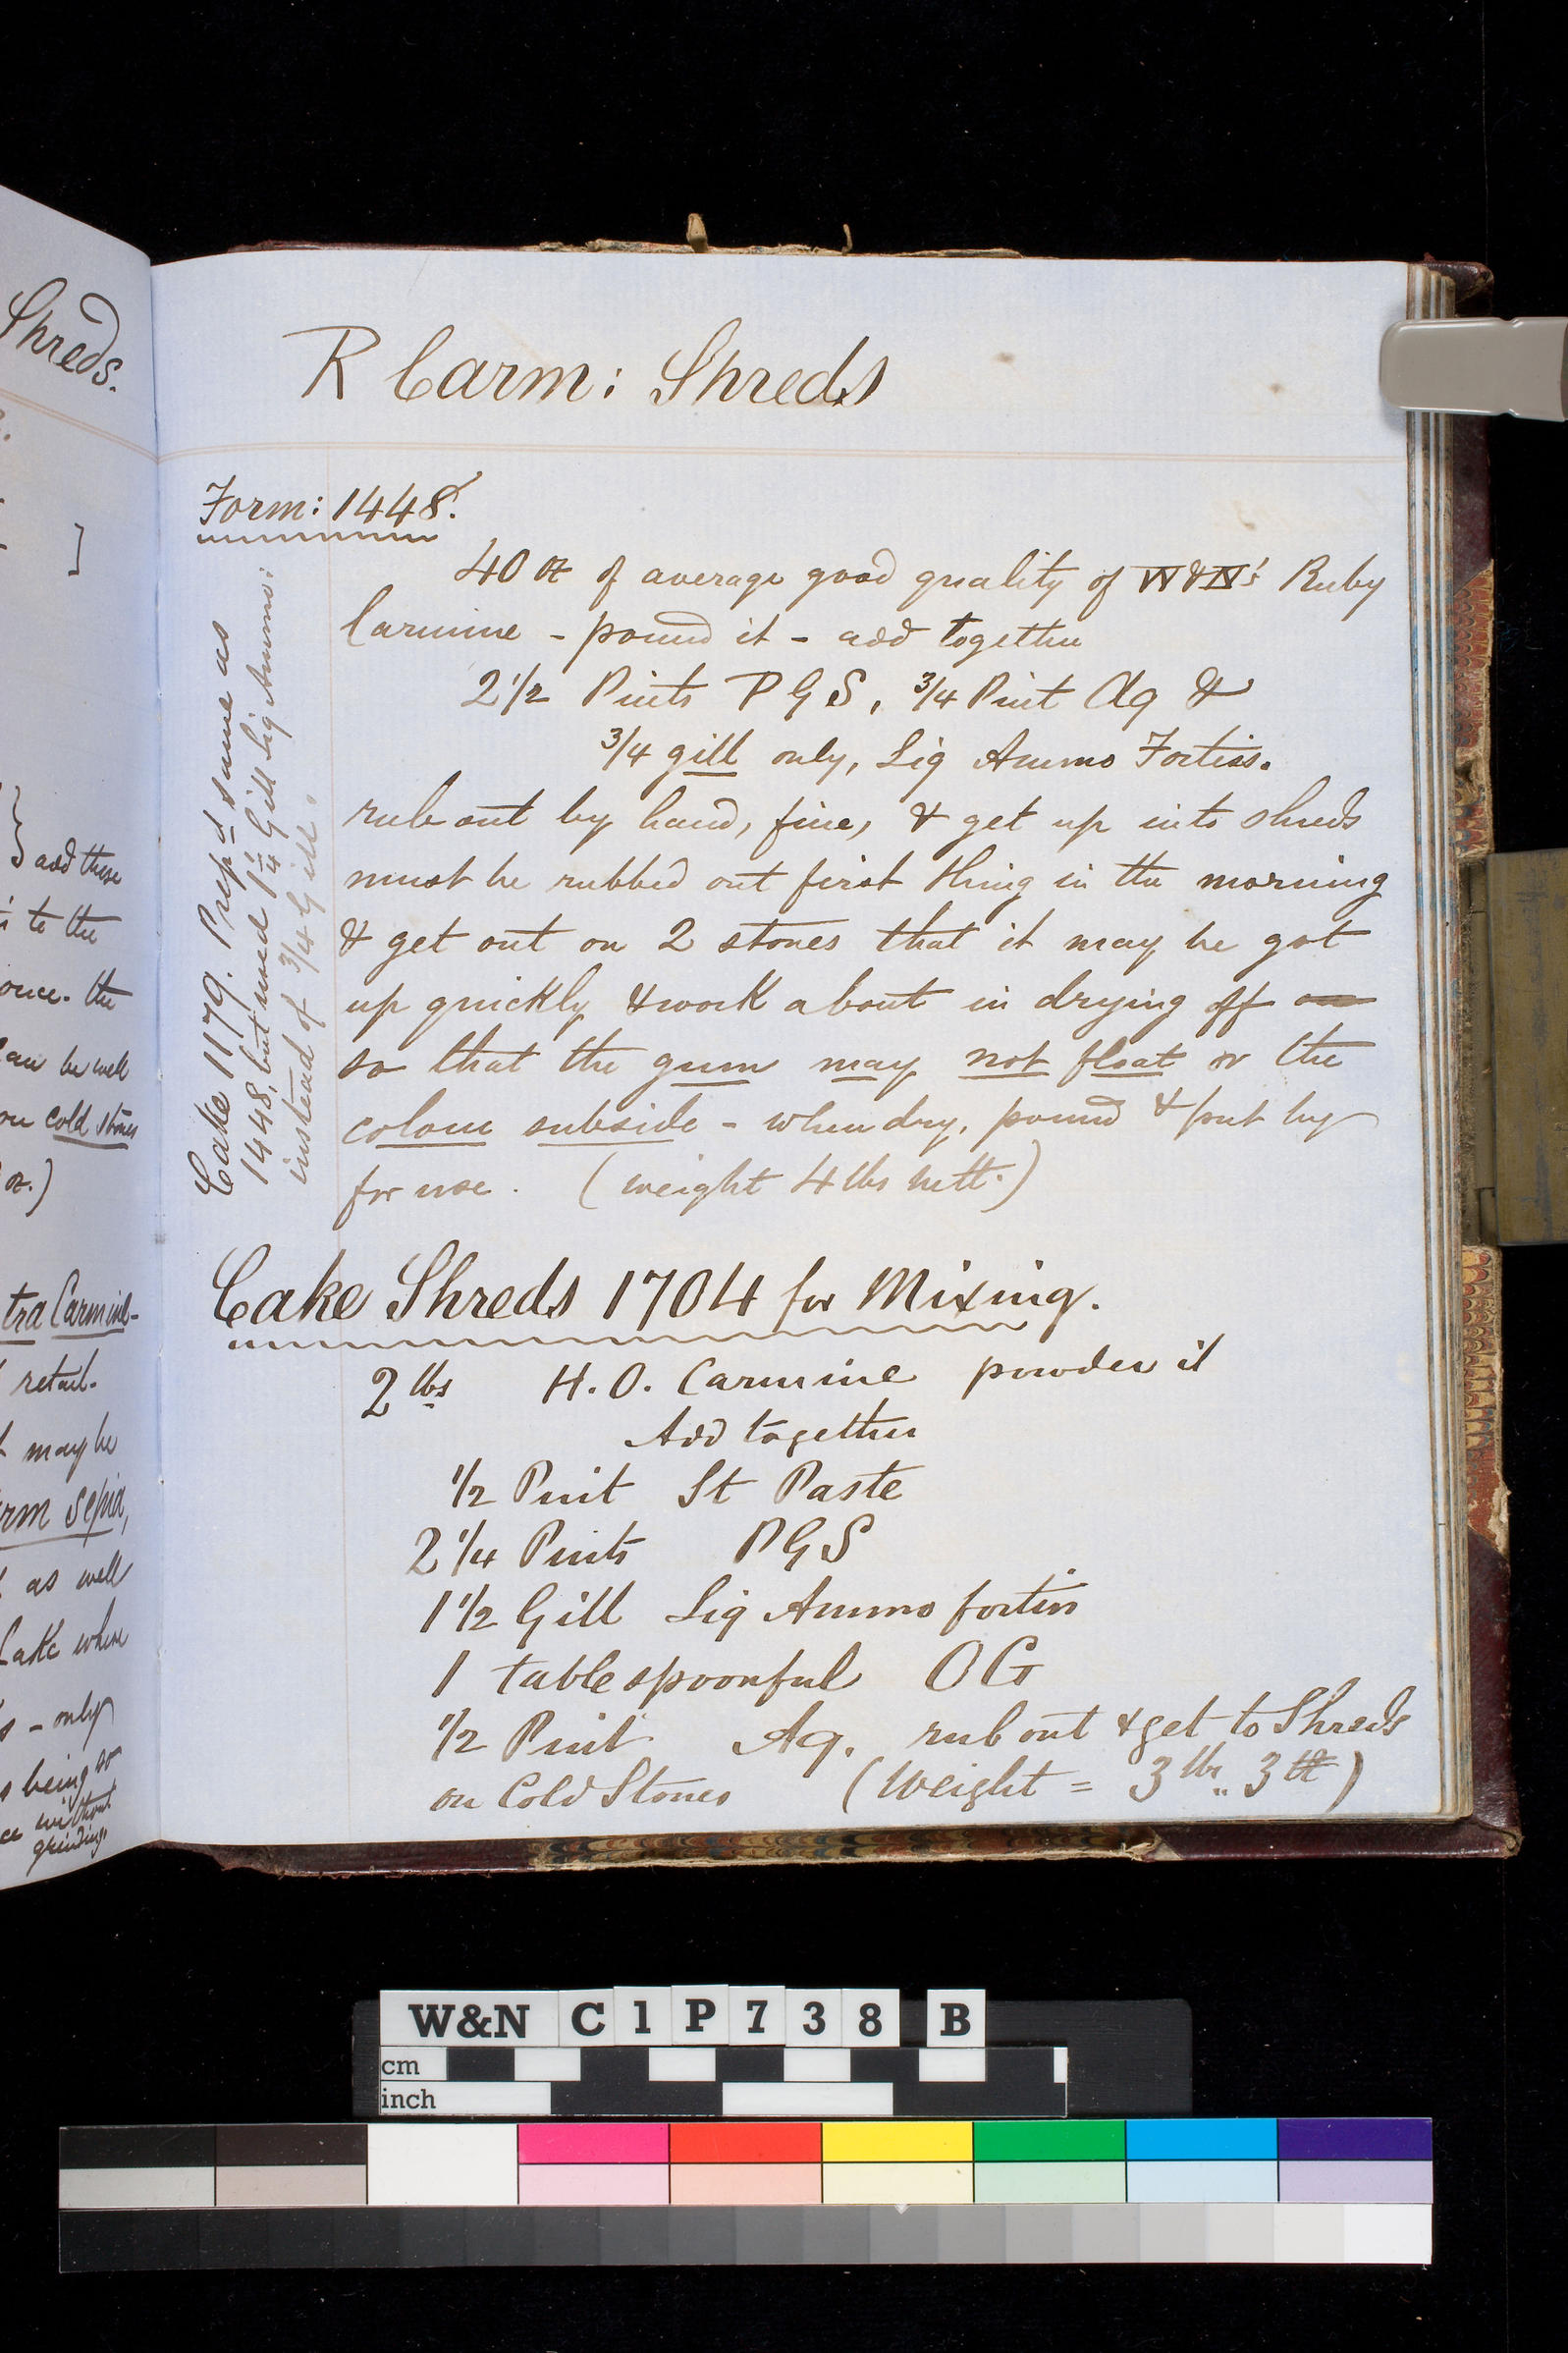 Shreds.
]
} add these
to the
once. the
can be well
on cold stones
oz.)
tra Carmine-
retail.
may be
rm Sepia,
as well
Cake when
s - only
s being so
ce without
grinding.
R Carm: Shreds
Form: 1448.
40 oz of average good quality of W&N's Ruby
Carmine - pound it - add together
2 1/2 Pints P G S, 3/4 Pint Aq &
3/4 gill only, Liq Ammo Fortiss.
rub out by hand, fine, & get up into shreds
must be rubbed out first thing in the morning
& get out on 2 stones that it may be got
up quickly & work about in drying off on
so that the gum may not float or the
colour subside - when dry, pound & put by
for use. (weight 4 lbs nett.)
Cake 1179. Prepd same as
1448, but used 1 1/4 Gill Liq Ammo:
instead of 3/4 Gill.
Cake Shreds 1704 for Mixing.
2 lbs H. O. Carmine powder it
Add together
1/2 Pint St Paste
2 1/4 Pints P G S
1 1/2 Gill Liq Ammo fortiss
1 tablespoonful O G
1/2 Pint Aq. rub out & get to Shreds
on Cold Stones (Weight = 3 lbs .. 3 oz)
W&N C1P738 B
cm
inch